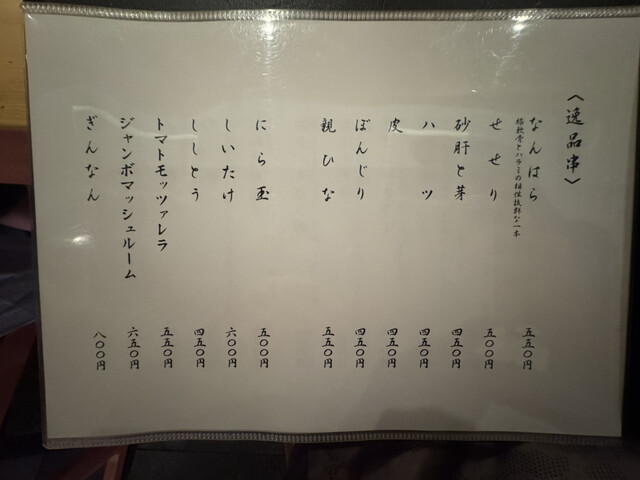 〈逸品串〉
なんはら 五五〇円
膝軟骨とハラミの相性抜群な一本
せせり 五〇〇円
砂肝と芽 四五〇円
ハツ 四五〇円
皮 四五〇円
ぼんじり 四五〇円
親ひな 五五〇円
にら玉 五〇〇円
しいたけ 六〇〇円
ししとう 四五〇円
トマトモッツァレラ 五五〇円
ジャンボマッシュルーム 六五〇円
ぎんなん 八〇〇円